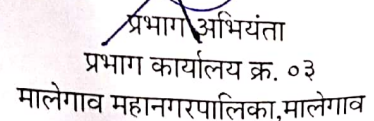 प्रभाग अभियंता
प्रभाग कार्यालय क्र. ०३
मालेगाव महानगरपालिका,मालेगाव